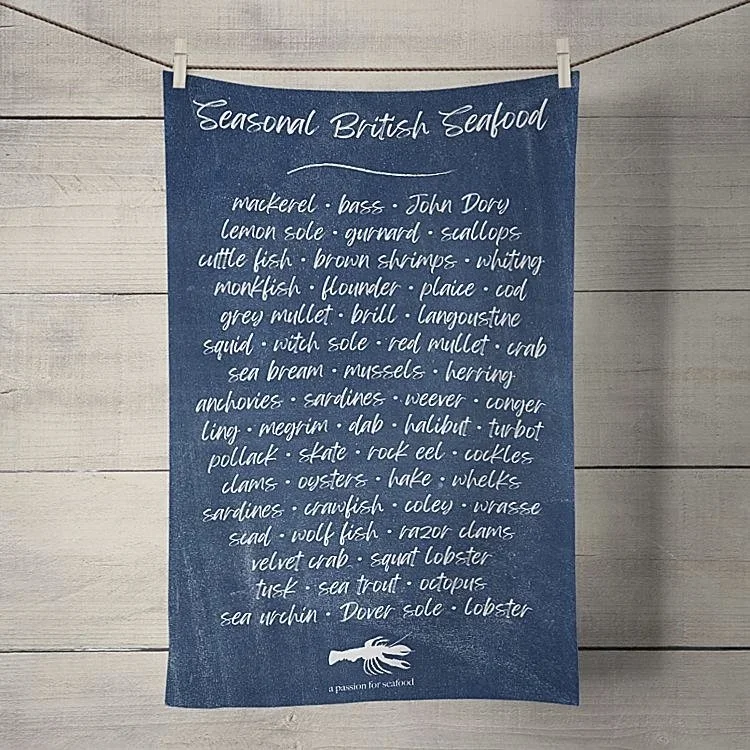 Seasonal British Seafood
mackerel • bass • John Dory
lemon sole • gurnard • scallops
cuttle fish • brown shrimps • whiting
monkfish • flounder • plaice • cod
grey mullet • brill • langoustine
squid • witch sole • red mullet • crab
sea bream • mussels • herring
anchovies • sardines • weever • conger
ling • megrim • dab • halibut • turbot
pollack • skate • rock eel • cockles
clams • oysters • hake • whelks
sardines • crawfish • coley • wrasse
scad • wolf fish • razor clams
velvet crab • squat lobster
tusk • sea trout • octopus
sea urchin • Dover sole • lobster
a passion for seafood